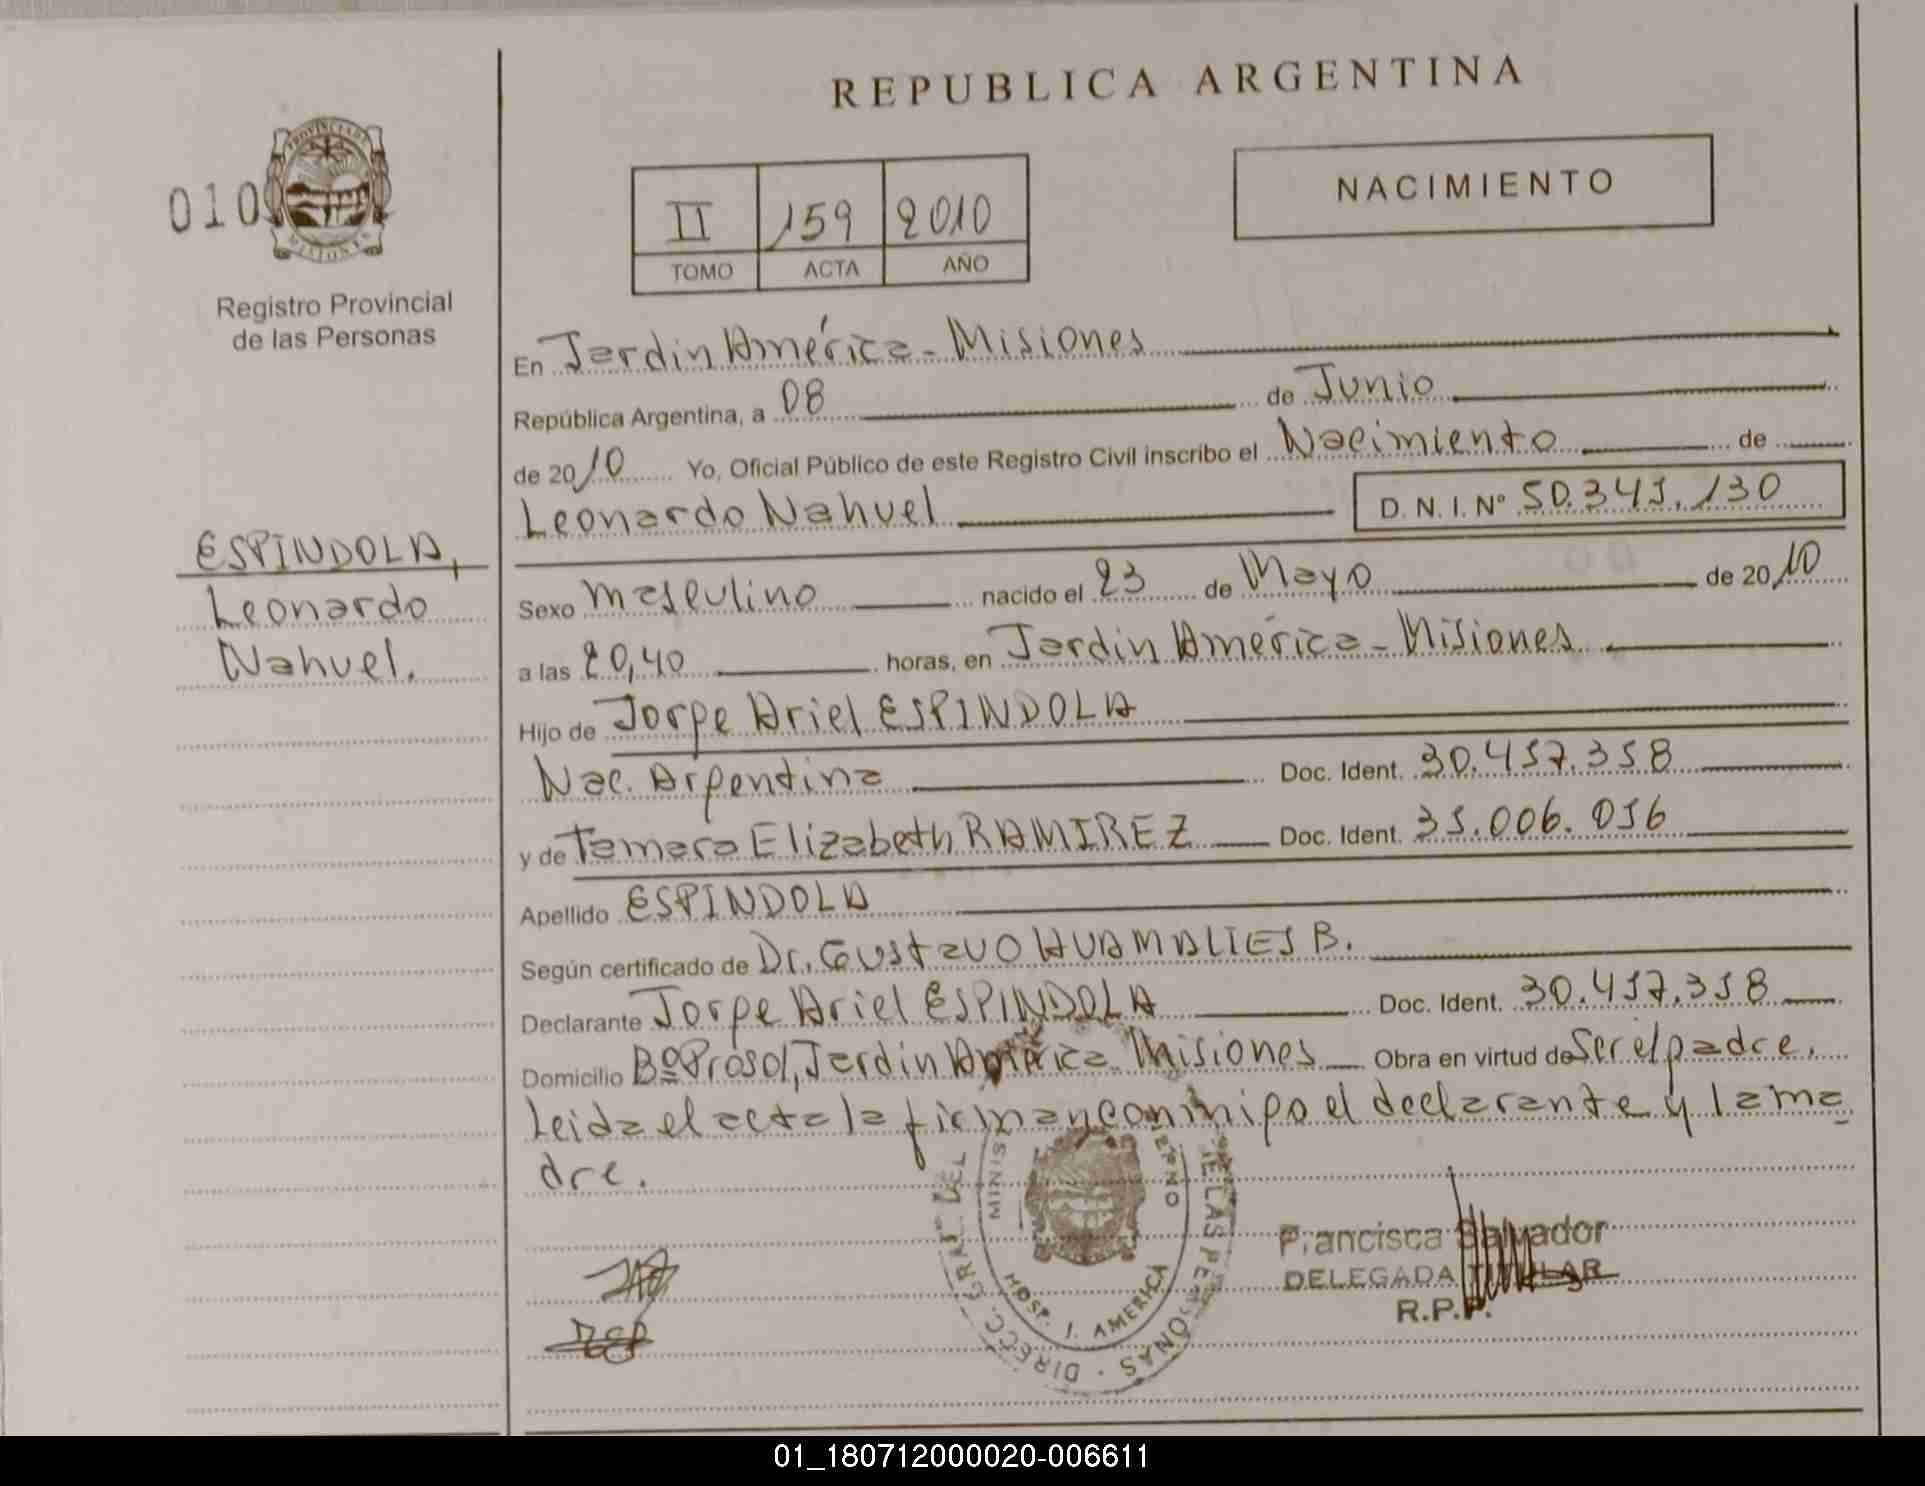 REPUBLICA ARGENTINA
010
PROVINCIA DE
MISIONES
Registro Provincial
de las Personas
II 159 2010
TOMO ACTA AÑO
NACIMIENTO
En Jardin América - Misiones
República Argentina, a 08 de Junio
de 2010 Yo, Oficial Público de este Registro Civil inscribo el Nacimiento de
Leonardo Nahuel D.N.I. Nº 50.341.130
ESPINDOLA,
Leonardo
Nahuel.
Sexo masculino nacido el 23 de Mayo de 2010
a las 20,40 horas, en Jardin América - Misiones
Hijo de Jorge Ariel ESPINDOLA
Nac. Argentina Doc. Ident. 30.457.358
y de Tamara Elizabeth RAMIREZ Doc. Ident. 31.006.016
Apellido ESPINDOLA
Según certificado de Dr. Gustavo HUAMALIES B.
Declarante Jorge Ariel ESPINDOLA Doc. Ident. 30.457.358
Domicilio Bº Prosol, Jardin América Misiones Obra en virtud de ser el padre.
Leida el acta la firman conmigo el declarante y la ma
dre.
DIRECC. GRAL. DEL DE LAS PERSONAS
MINIS
HOSP. J. AMERICA
Francisca Salvador
DELEGADA TITULAR
R.P.P.
01_180712000020-006611